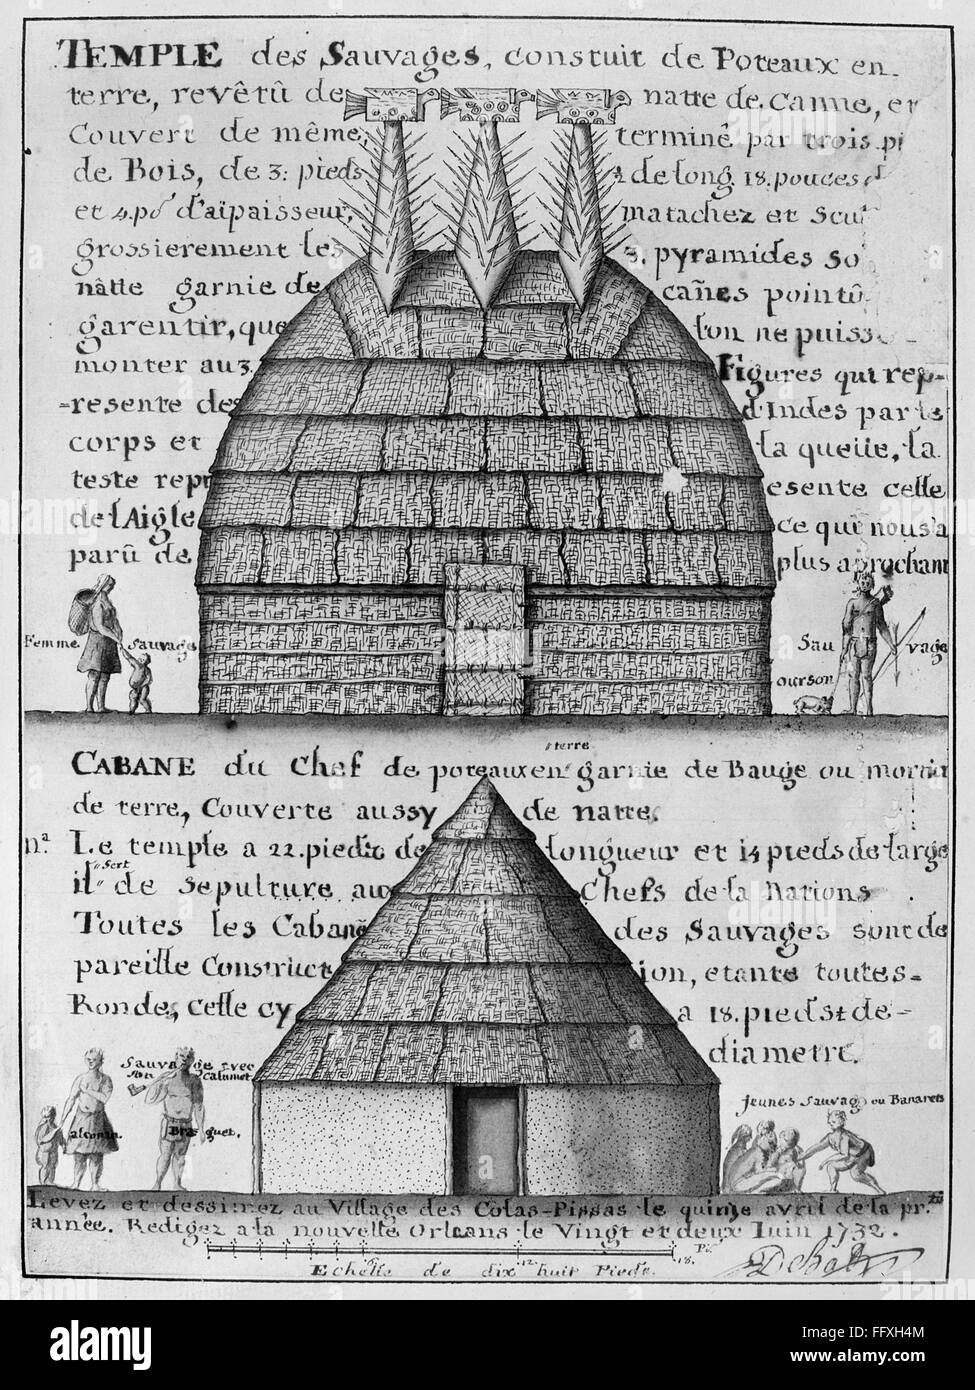 TEMPLE des Sauvages, constuit de Poteaux en-
terre, revêtû de natte de Canne, et
Couvert de même, terminé par trois pi
de Bois, de 3: pieds ½ de long 18. pouces d
et 4. po d'aïpaisseur, matachez et Scul
grossierement les 3. pyramides so
nâtte garnie de cañes pointû
garentir, que l'on ne puiss
monter au 3. Figures qui rep-
-resente des d'Indes par le
corps et la queüe, la
teste repr esente celle
de l'Aigle ce qui nous a
parû de plus aprochant
Femme Sauvage
Sau vage
ourson
terre
CABANE du Chef de poteaux en garnie de Bauge ou mortier
de terre, Couverte aussy de natte.
na. Le temple a 22. pieds de longueur et 14 pieds de large
Sert
il de Sepulture aux Chefs de la Nations
Toutes les Cabane des Sauvages sont de
pareille Construct ion, etante toutes-
Ronde, celle cy a 18. pieds de-
diametre.
Sauvage avec
son Calumet
Jeunes Sauvag ou Banarets
alconan. Bra guet.
Levez et dessinez au Village des Colas-Pissas le quinze avril de la pr.
année. Redigez a la nouvelle Orleans le Vingt et deux Juin 1732.
12 18. Pi.
Echelle de dix huit Pieds.
DeBatz
alamy
Image ID: FFXH4M
www.alamy.com